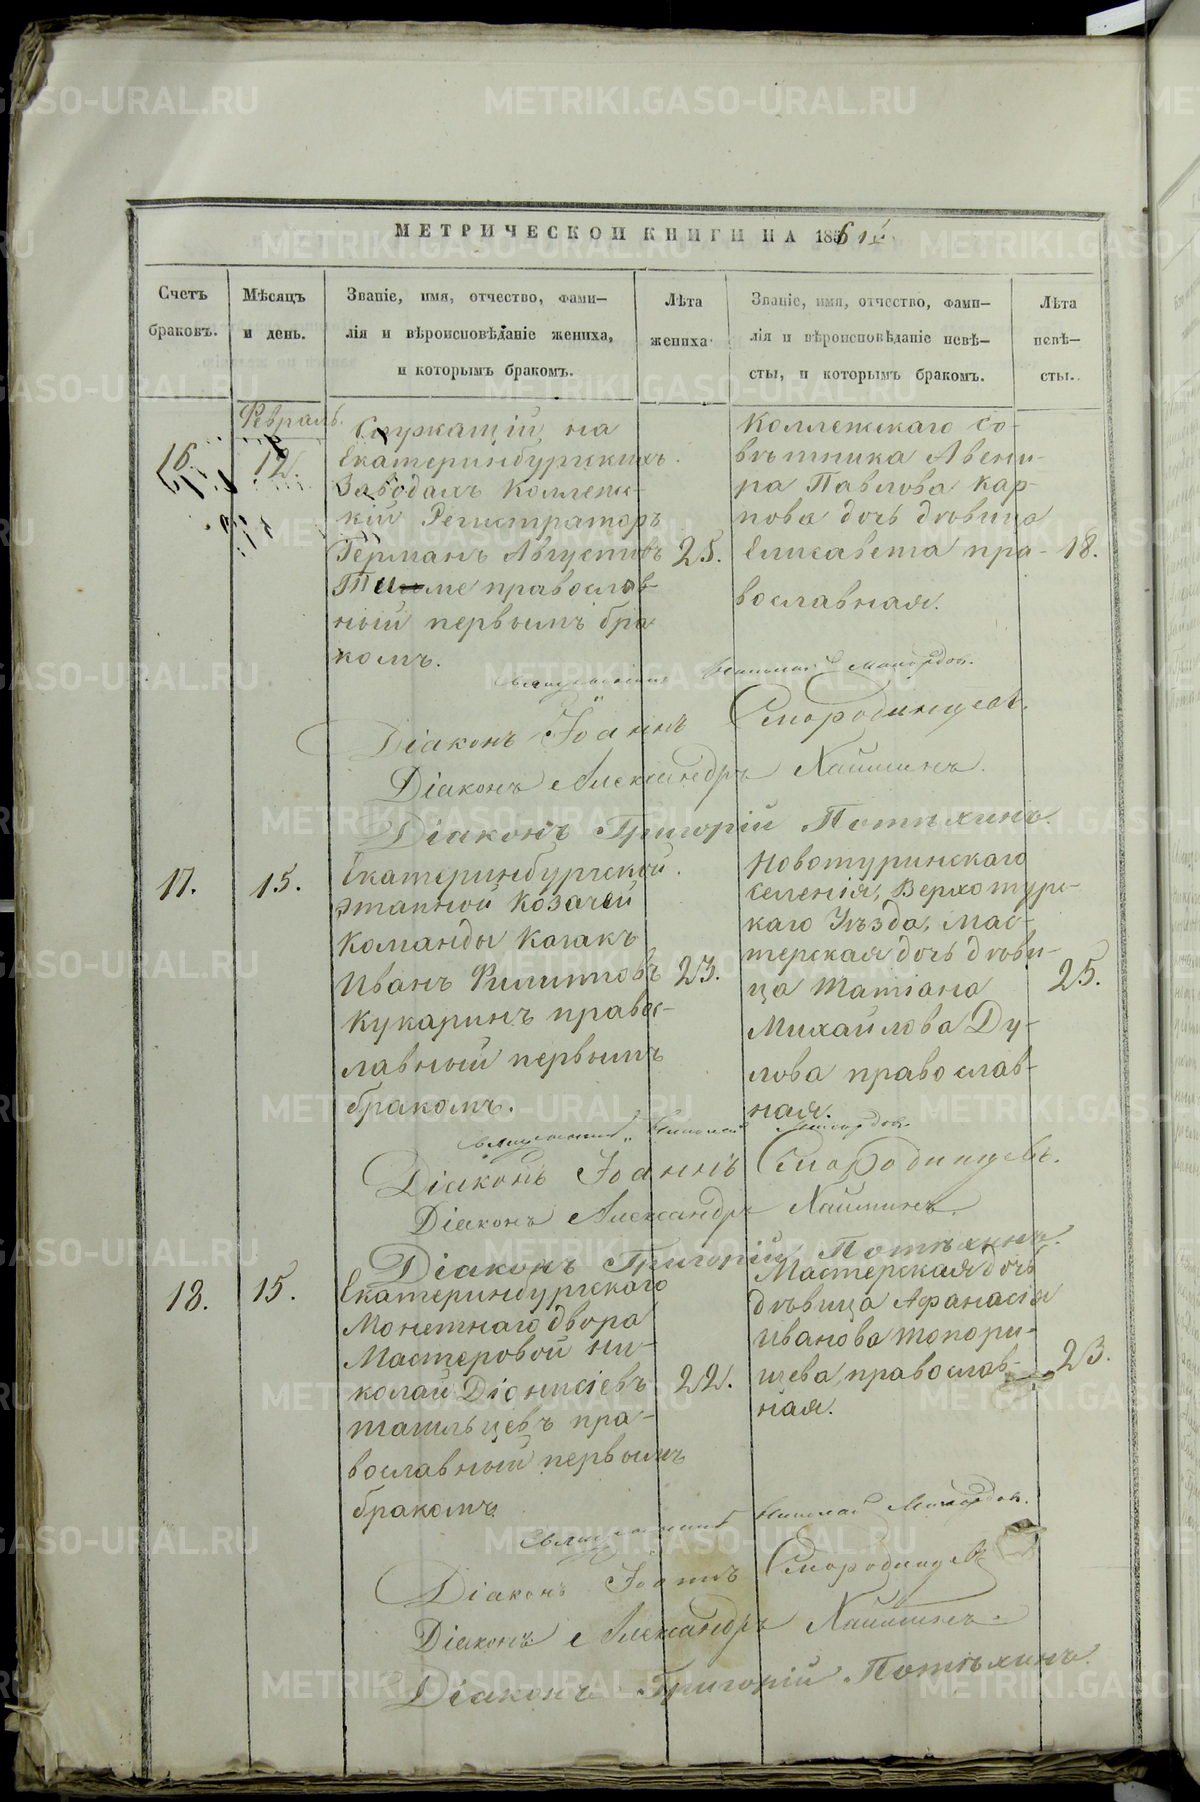 МЕТРИЧЕСКОЙ КНИГИ НА 1861й
Счетъ браковъ.
Мѣсяцъ и день.
Званіе, имя, отчество, фами-
лія и вѣроисповѣданіе жениха,
и которымъ бракомъ.
Лѣта жениха
Званіе, имя, отчество, фами-
лія и вѣроисповѣданіе невѣ-
сты, и которымъ бракомъ.
Лѣта невѣ-
сты.
Февраль.
16
12.
Служащій на
Екатеринбургскихъ
Заводахъ Коллеж-
кій Регистраторъ
Германъ Августивъ
православ-
ный первымъ бра
комъ.
25.
Коллежскаго со-
вѣтника Авени-
ра Павлова Кар-
пова дочь дѣвица
Елисавета пра-
вославная.
18.
Священникъ Николай
Діаконъ Іоаннъ Смородинцевъ.
Діаконъ Александръ Хайминъ.
Діаконъ Григорій Потѣхинъ.
17.
15.
Екатеринбургской
этапной Козачей
Команды Казакъ
Иванъ Филипповъ
Кукаринъ правос-
лавный первымъ
бракомъ.
23.
Новотуринскаго
селенія, Верхотурс-
каго Уѣзда, Мас-
терская дочь дѣви-
ца Татіана
Михайлова Ду-
лова православ-
ная.
25.
Священникъ Николай
Діаконъ Іоаннъ Смородинцевъ.
Діаконъ Александръ Хайминъ.
Діаконъ Григорій Потѣхинъ.
18.
15.
Екатеринбургскаго
Монетнаго двора
Мастеровой Ни-
колай Діонисіевъ
Тагильцевъ пра-
вославный первымъ
бракомъ
22.
Мастерская дочь
дѣвица Афанасія
Иванова Топори-
щева, православ-
ная.
23.
Священникъ Николай
Діаконъ Іоаннъ Смородинцевъ
Діаконъ Александръ Хайминъ.
Діаконъ Григорій Потѣхинъ.
METRIKI.GASO-URAL.RU